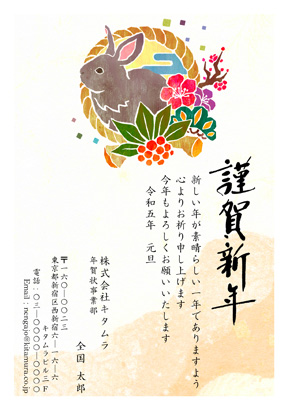 謹賀新年
新しい年が素晴らしい一年でありますよう
心よりお祈り申し上げます
今年もよろしくお願いいたします
令和五年　元旦
株式会社キタムラ
年賀状事業部
全国 太郎
〒一六〇―〇〇二三
東京都新宿区西新宿六―一六―六
キタムラビル二F
電話：〇三―〇〇〇〇―〇〇〇〇
Email：nengajo@kitamura.co.jp